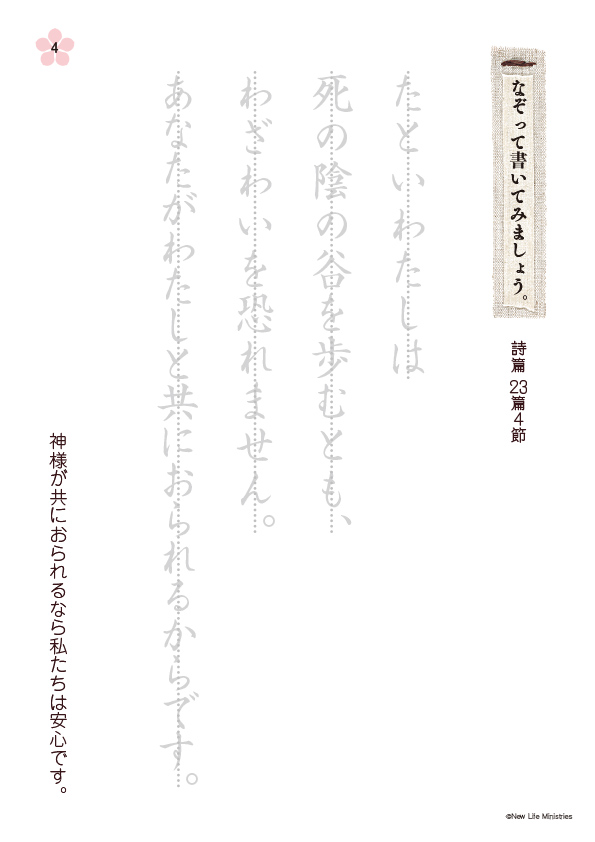 4
なぞって書いてみましょう。
詩篇 23篇4節
たといわたしは
死の陰の谷を歩むとも、
わざわいを恐れません。
あなたがわたしと共におられるからです。
神様が共におられるなら私たちは安心です。
©New Life Ministries